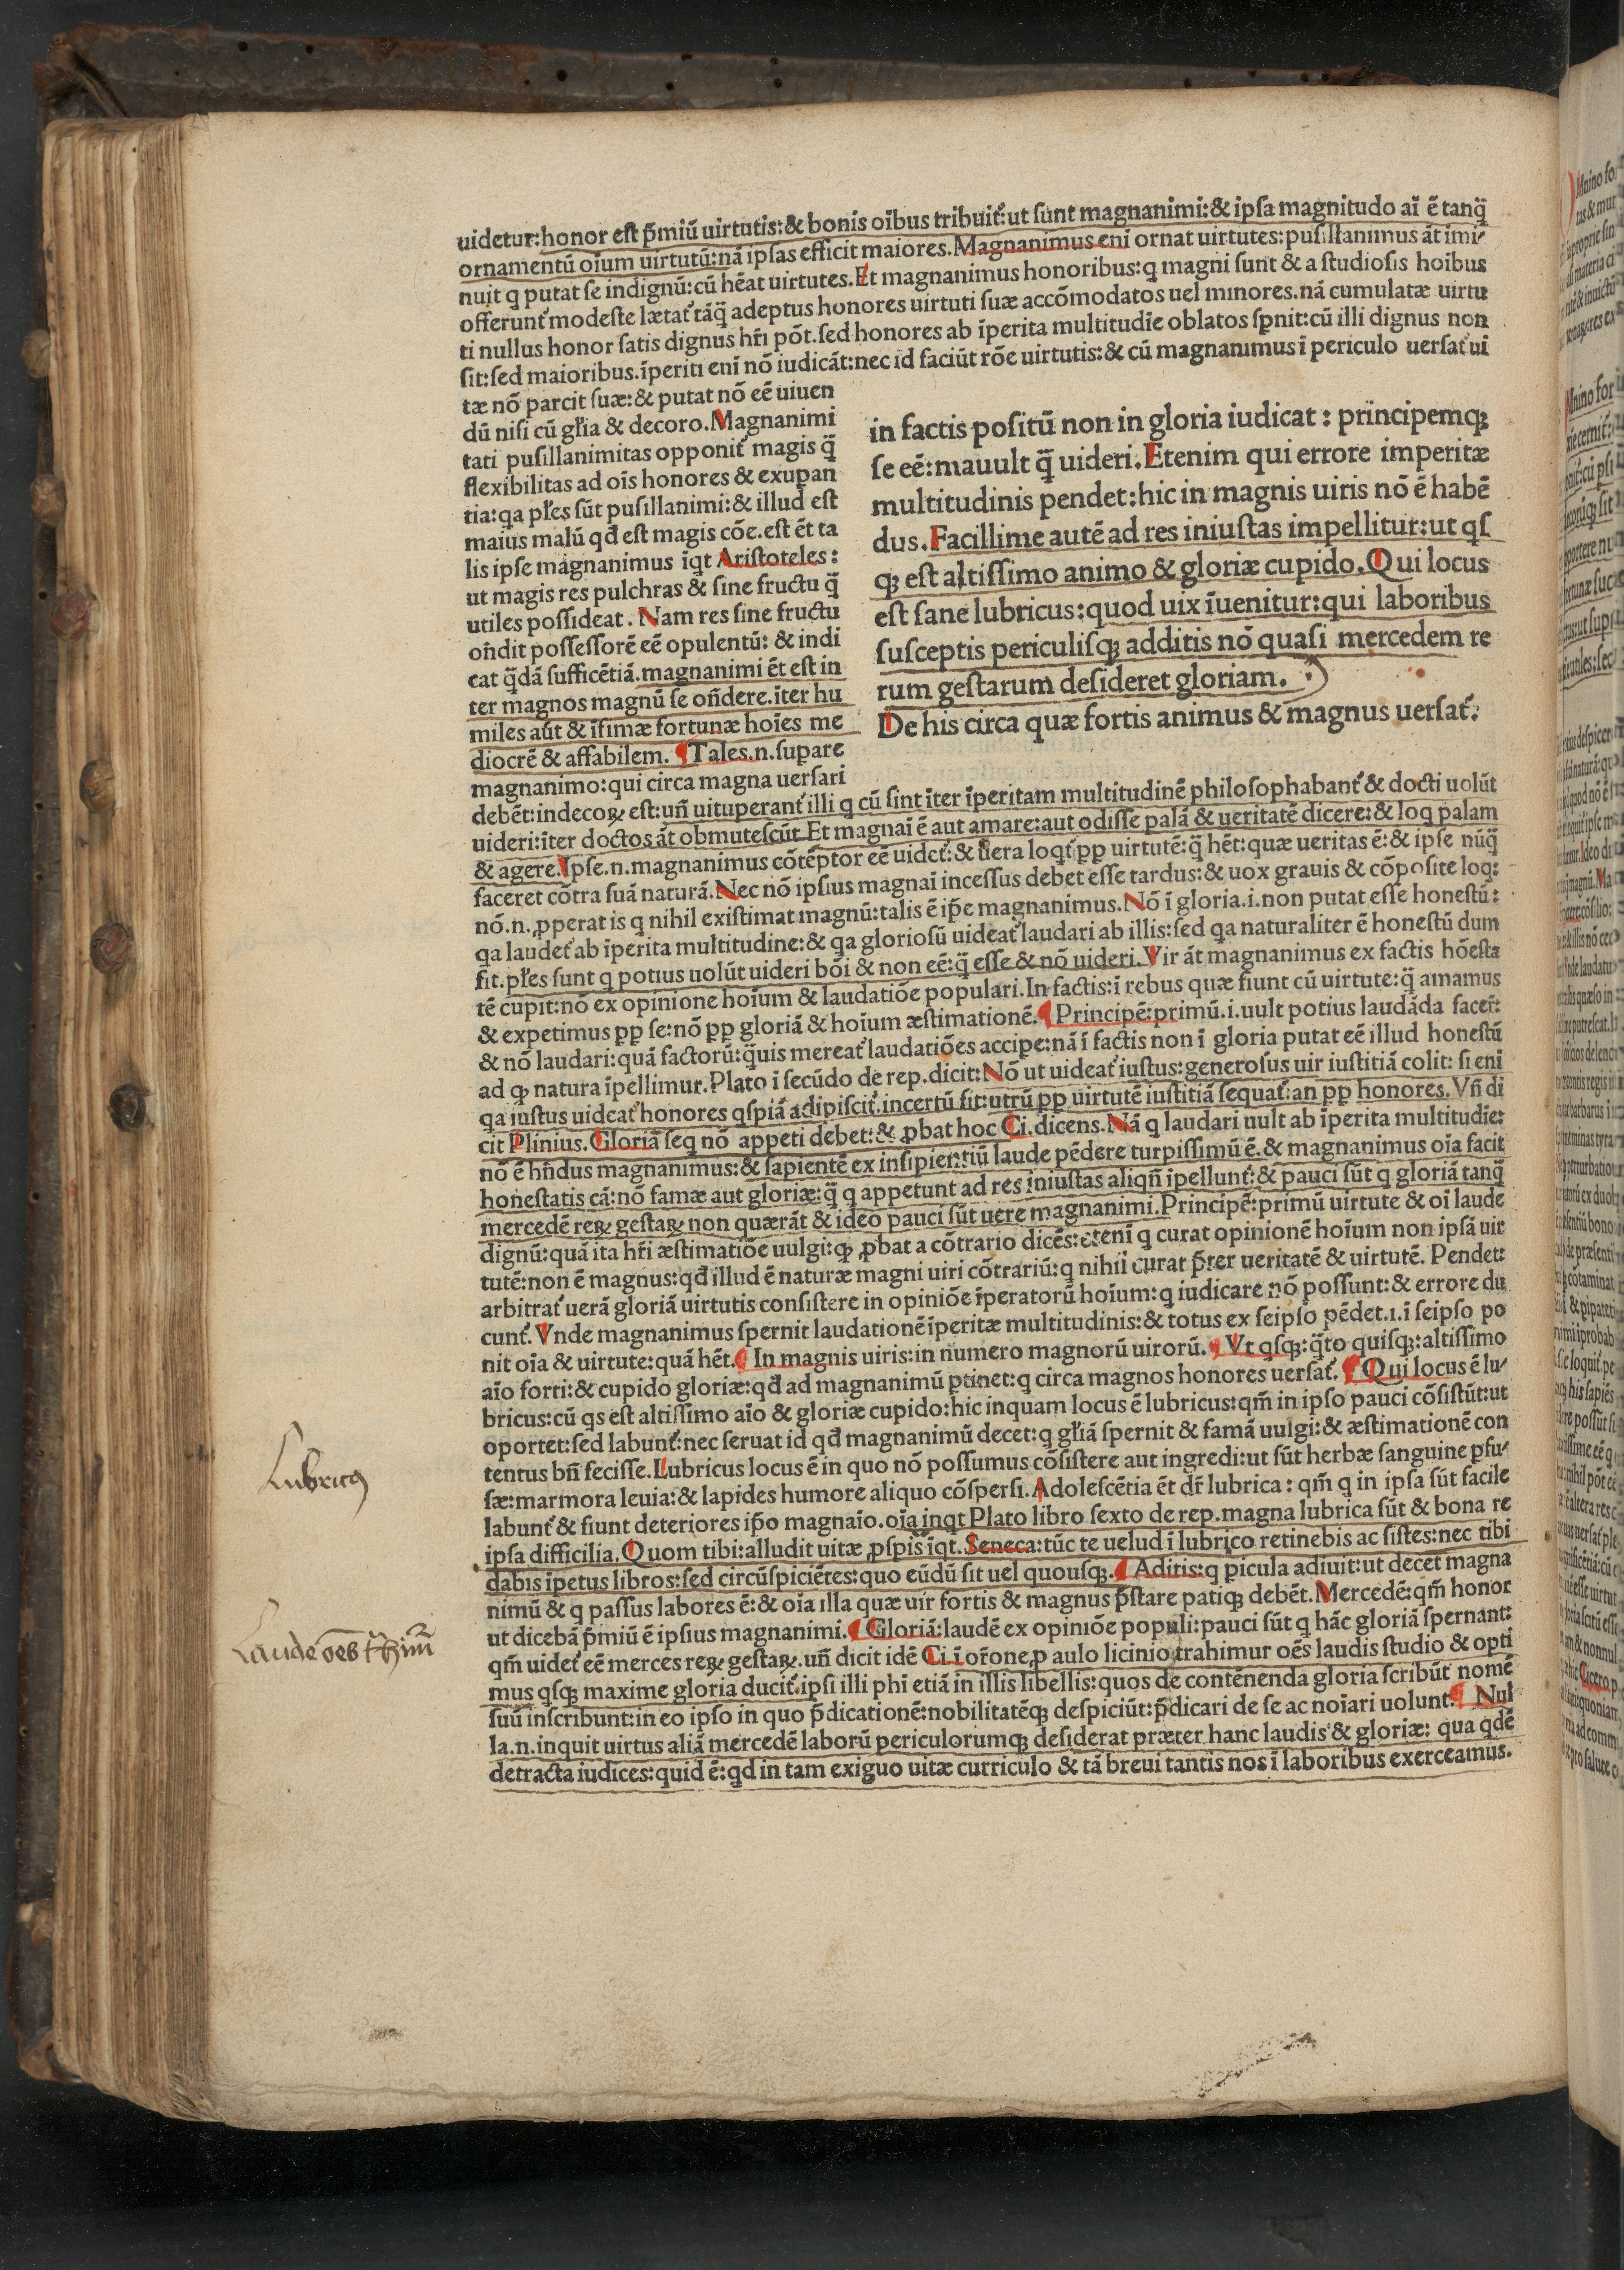 uidetur:honor est p̄miū uirtutis:&bonis oībus tribuit᷑:ut sunt magnanimi:&ipsa magnitudo aī ē tanq̄
ornamentū oīum uirtutū:nā ipsas efficit maiores.Magnanimus enī ornat uirtutes:pusillanimus āt imi-
nuit q putat se indignū:cū hēat uirtutes.Et magnanimus honoribus:q magni sunt & a studiosis hoībus
offerunt᷑ modeste lætat᷑ tāq̄ adeptus honores uirtuti suæ accōmodatos uel minores.nā cumulatæ uirtu
ti nullus honor satis dignus hr̄i pōt.sed honores ab īperita multitudīe oblatos sp̄nit:cū illi dignus non
sit:sed maioribus.īperiti enī nō iudicāt:nec id faciūt rōe uirtutis:& cū magnanimus ī periculo uersat᷑ ui
tæ nō parcit suæ:& putat nō eē uiuen
dū nisi cū gl̄ia & decoro.Magnanimi
tati pusillanimitas opponit᷑ magis q̄
flexibilitas ad oīs honores & exupan
tia:qa pl̄es sūt pusillanimi:& illud est
maius malū qđ est magis cōe.est ēt ta
lis ipse magnanimus īqt Aristoteles:
ut magis res pulchras & sine fructu q̄
utiles possideat. Nam res sine fructu
on̄dit possessorē eē opulentū: & indi
cat q̄dā sufficētiā.magnanimi ēt est in
ter magnos magnū se on̄dere.īter hu
miles aūt & īfimæ fortunæ hoīes me
diocrē & affabilem. ¶Tales.n.supare
magnanimo:qui circa magna uersari
in factis positū non in gloria iudicat : principemq;
se eē:mauult q̄ uideri.Etenim qui errore imperitæ
multitudinis pendet:hic in magnis uiris nō ē habē
dus.Facillime autē ad res iniustas impellitur:ut qs
q; est altissimo animo & gloriæ cupido.Qui locus
est sane lubricus:quod uix īuenitur:qui laboribus
susceptis periculisq; additis nō quasi mercedem re
rum gestarum desideret gloriam.
De his circa quæ fortis animus & magnus uersat᷑.
debēt:indecoꝝ est:un̄ uituperant᷑ illi q cū sint īter īperitam multitudinē philosophabant᷑ & docti uolūt
uideri:īter doctos āt obmutescūt.Et magnaī ē aut amare:aut odisse palā & ueritatē dicere:& loq palam
& agere.Ipse.n.magnanimus cōtēptor eē uidet᷑:& uera loqt᷑ pp uirtutē:q̄ hēt:quæ ueritas ē:& ipse nūq̄
faceret cōtra suā naturā.Nec nō ipsius magnaī incessus debet esse tardus:& uox grauis & cōposite loq:
nō.n.ꝓperat is q nihil existimat magnū:talis ē ip̄e magnanimus.Nō ī gloria.i.non putat esse honestū:
qa laudet᷑ ab īperita multitudine:& qa gloriosū uideat᷑ laudari ab illis:sed qa naturaliter ē honestū dum
fit.pl̄es sunt q potius uolūt uideri bōi & non eē:q̄ esse & nō uideri.Vir āt magnanimus ex factis hōesta
tē cupit:nō ex opinione hoīum & laudatiōe populari.In factis:ī rebus quæ fiunt cū uirtute:q̄ amamus
& expetimus pp se:nō pp gloriā & hoīum æstimationē.¶Principē:primū.i.uult potius laudāda facer̄:
& nō laudari:quā factorū:q̄uis mereat᷑ laudatiōes accipe:nā ī factis non ī gloria putat eē illud honestū
ad qꝫ natura īpellimur.Plato ī secūdo de rep.dicit:Nō ut uideat᷑ iustus:generosus uir iustitiā colit: si enī
qa iustus uideat᷑ honores qspiā adipiscit᷑.incertū sit:utrū pp uirtutē iustitiā sequat᷑:an pp honores.Vn̄ di
cit Plinius.Gloriā seq nō appeti debet:& ꝓbat hoc Ci.dicens.Nā q laudari uult ab īperita multitudīe:
nō ē hn̄dus magnanimus:& sapientē ex insipientiū laude pēdere turpissimū ē.& magnanimus oīa facit
honestatis cā:nō famæ aut gloriæ:q̄ q appetunt ad res iniustas aliqn̄ īpellunt᷑:& pauci sūt q gloriā tanq̄
mercedē reꝝ gestaꝝ non quærāt & ideo pauci sūt uere magnanimi.Principē:primū uirtute & oī laude
dignū:quā ita hr̄i æstimatiōe uulgi:qꝫ ꝓbat a cōtrario dicēs:etenī q curat opinionē hoīum non ipsā uir
tutē:non ē magnus:qđ illud ē naturæ magni uiri cōtrariū:q nihil curat p̄ter ueritatē & uirtutē. Pendet:
arbitrat᷑ uerā gloriā uirtutis consistere in opiniōe īperatorū hoīum:q iudicare nō possunt:& errore du
cunt᷑. Vnde magnanimus spernit laudationē īperitæ multitudinis:& totus ex seipso pēdet.i.ī seipso po
nit oīa & uirtute:quā hēt.¶ In magnis uiris:in numero magnorū uirorū.¶ Vt qsq;:q̄to quisq;:altissimo
aīo forti:& cupido gloriæ:qđ ad magnanimū ptinet:q circa magnos honores uersat᷑. ¶Qui locus ē lu-
bricus:cū qs est altissimo aīo & gloriæ cupido:hic inquam locus ē lubricus:qm̄ in ipso pauci cōsistūt:ut
oportet:sed labunt᷑:nec seruat id qđ magnanimū decet:q gl̄iā spernit & famā uulgi:& æstimationē con
tentus bn̄ fecisse.Lubricus locus ē in quo nō possumus cōsistere aut ingredi:ut sūt herbæ sanguine pfu-
sæ:marmora leuia:& lapides humore aliquo cōspersi.Adolescētia ēt dr̄ lubrica: qm̄ q in ipsa sūt facile
labunt᷑ & fiunt deteriores ip̄o magnaīo.oīa inqt Plato libro sexto de rep.magna lubrica sūt & bona re
ipsa difficilia.Quom tibi:alludit uitæ ꝓspis īqt.Seneca:tūc te uelud ī lubrico retinebis ac sistes:nec tibi
dabis īpetus libros:sed circūspiciētes:quo eūdū sit uel quousq;.¶ Aditis:q picula adiuit:ut decet magna
nimū & q passus labores ē:& oīa illa quæ uir fortis & magnus p̄stare patiq; debēt.Mercedē:qm̄ honor
ut dicebā p̄miū ē ipsius magnanimi.¶ Gloriā:laudē ex opiniōe populi:pauci sūt q hāc gloriā spernant:
qm̄ uidet᷑ eē merces reꝝ gestaꝝ.un̄ dicit idē Ci.ī or̄one ꝓ aulo licinio trahimur oēs laudis studio & opti
mus qsq; maxime gloria ducit᷑.ipsi illi phi etiā in illis libellis:quos de contēnenda gloria scribūt nomē
suū inscribunt:in eo ipso in quo p̄dicationē:nobilitatēq; despiciūt:p̄dicari de se ac noīari uolunt.¶ Nul
la.n.inquit uirtus aliā mercedē laborū periculorumq; desiderat præter hanc laudis & gloriæ: qua qdē
detracta iudices:quid ē:qd in tam exiguo uitæ curriculo & tā breui tantis nos ī laboribus exerceamus.
Lubricus